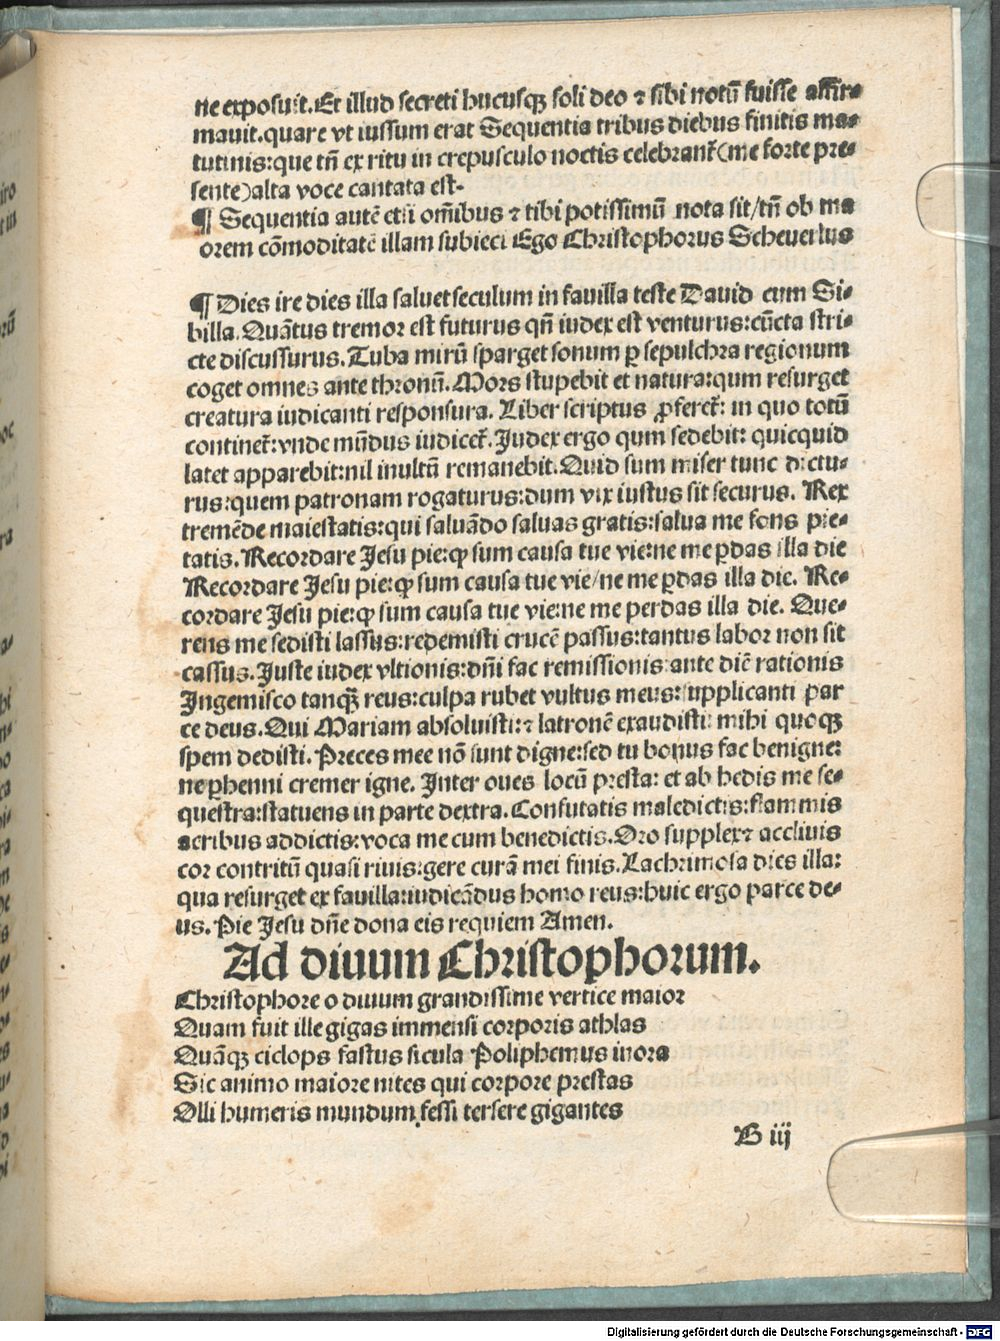 ne exposuit. Et illud secreti hucusqꝫ soli deo ⁊ sibi notū fuisse affir⸗
mauit. quare vt iussum erat Sequentia tribus diebus finitis ma⸗
tutinis: que tñ ex ritu in crepusculo noctis celebrant᷑ (me forte pre⸗
sente) alta voce cantata est.
¶ Sequentia autē etsi om̄ibus ⁊ tibi potissimū nota sit/ tñ ob ma
orem cōmoditatē illam subieci Ego Christophorus Scheuerlus
¶ Dies ire dies illa saluet seculum in fauilla teste Dauid cum Si⸗
billa. Quātus tremor est futurus qñ iudex est venturus: cūcta stri⸗
cte discussurus. Tuba mirū sparget sonum ꝑ sepulchra regionum
coget omnes ante thronū. Mors stupebit et natura: qum resurget
creatura iudicanti responsura. Liber scriptus ꝓferet᷑: in quo totū
continet᷑: vnde mūdus iudicet᷑. Judex ergo qum sedebit: quicquid
latet apparebit: nil inultū remanebit. Quid sum miser tunc dictu⸗
rus: quem patronam rogaturus: dum vix iustus sit securus. Rex
tremēde maiestatis: qui saluādo saluas gratis: salua me fons pie⸗
tatis. Recordare Jesu pie: ꝙ sum causa tue vie: ne me ꝑdas illa die
Recordare Jesu pie: ꝙ sum causa tue vie/ ne me ꝑdas illa die. Re⸗
cordare Jesu pie: ꝙ sum causa tue vie: ne me perdas illa die. Que⸗
rens me sedisti lassus: redemisti crucē passus: tantus labor non sit
cassus. Juste iudex vltionis: dñi fac remissionis: ante diē rationis
Jngemisco tanqꝫ reus: culpa rubet vultus meus: supplicanti par
ce deus. Qui Mariam absoluisti: ⁊ latronē exaudisti: mihi quoqꝫ
spem dedisti. Preces mee nō sunt digne: sed tu bonus fac benigne:
ne ꝑhenni cremer igne. Jnter oues locū presta: et ab hedis me se⸗
questra: statuens in parte dextra. Confutatis maledictis: flammis
acribus addictis: voca me cum benedictis. Oro supplex ⁊ accliuis
cor contritū quasi riuis: gere curā mei finis. Lachrimosa dies illa:
qua resurget ex fauilla: iudicādus homo reus: huic ergo parce de⸗
us. Pie Jesu dñe dona eis requiem Amen.
Ad diuum Christophorum.
Christophore o diuum grandissime vertice maior
Quam fuit ille gigas immensi corporis athlas
Quāqꝫ ciclops fastus sicula Poliphemus in ora
Sic animo maiore nites qui corpore prestas
Olli humeris mundum fessi tersere gigantes
B iij
Digitalisierung gefördert durch die Deutsche Forschungsgemeinschaft - DFG